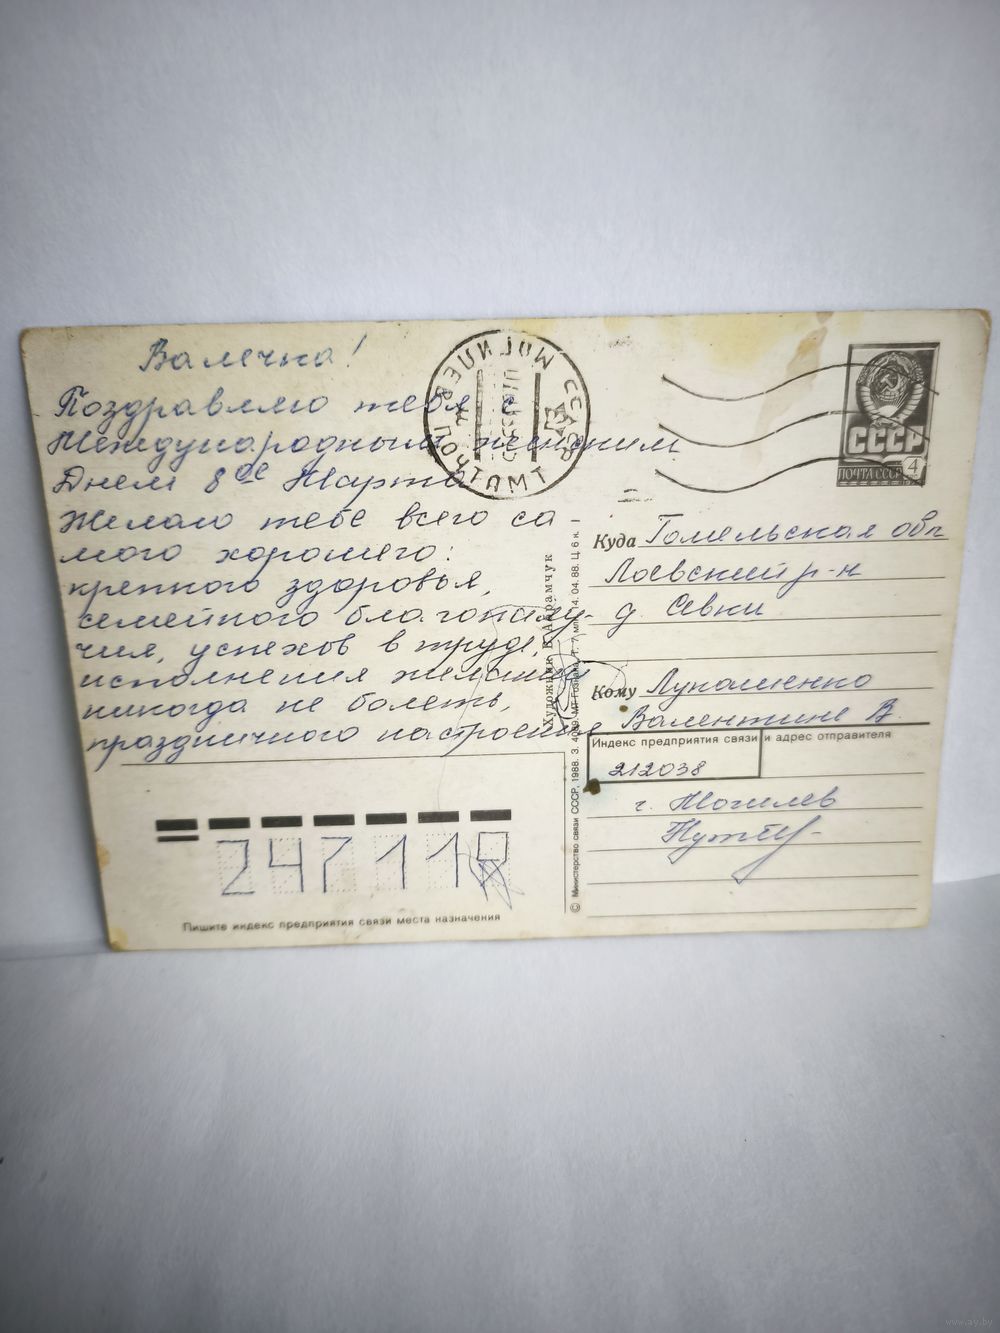 Валечка!
Поздравляю тебя с
Международным женским
Днем 8ое Марта
Желаю тебе всего са-
мого хорошего:
крепкого здоровья,
семейного благополу-
чия, успехов в труде,
исполнения желаний
никогда не болеть,
праздничного настроения
МОГИЛЕВ ПОЧТАМТ
СССР
СССР
ПОЧТА СССР 4
Куда Гомельская обл
Лоевский р-н
д. Севки
Кому Лукашенко
Валентине В.
Индекс предприятия связи и адрес отправителя
212038
г. Могилев
Художник В. Абрамчук
© Министерство связи СССР, 1988. З. МТ Гознака. Т. 7 млн. 14.04.88. Ц. 6 к.
247118
Пишите индекс предприятия связи места назначения
www.ay.by